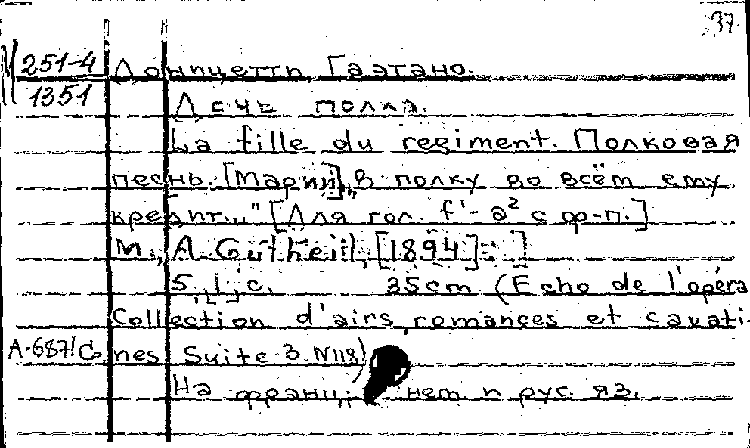 37
М 251-4 Доницетти Гаэтано.
1351
Дочь полка.
La fille du regiment. Полковая
песнь [Марии] „в полку во всём ему
кредит..." [Для гол. f¹-a² с ф-п.]
М., A. Gutheil, [1894]
5, [, c. 35cm (Echo de l'opéra
Collection d'airs, romances et cavati-
А-687/Со nes Suite 3 N118)
На франц., нем. и рус. яз.